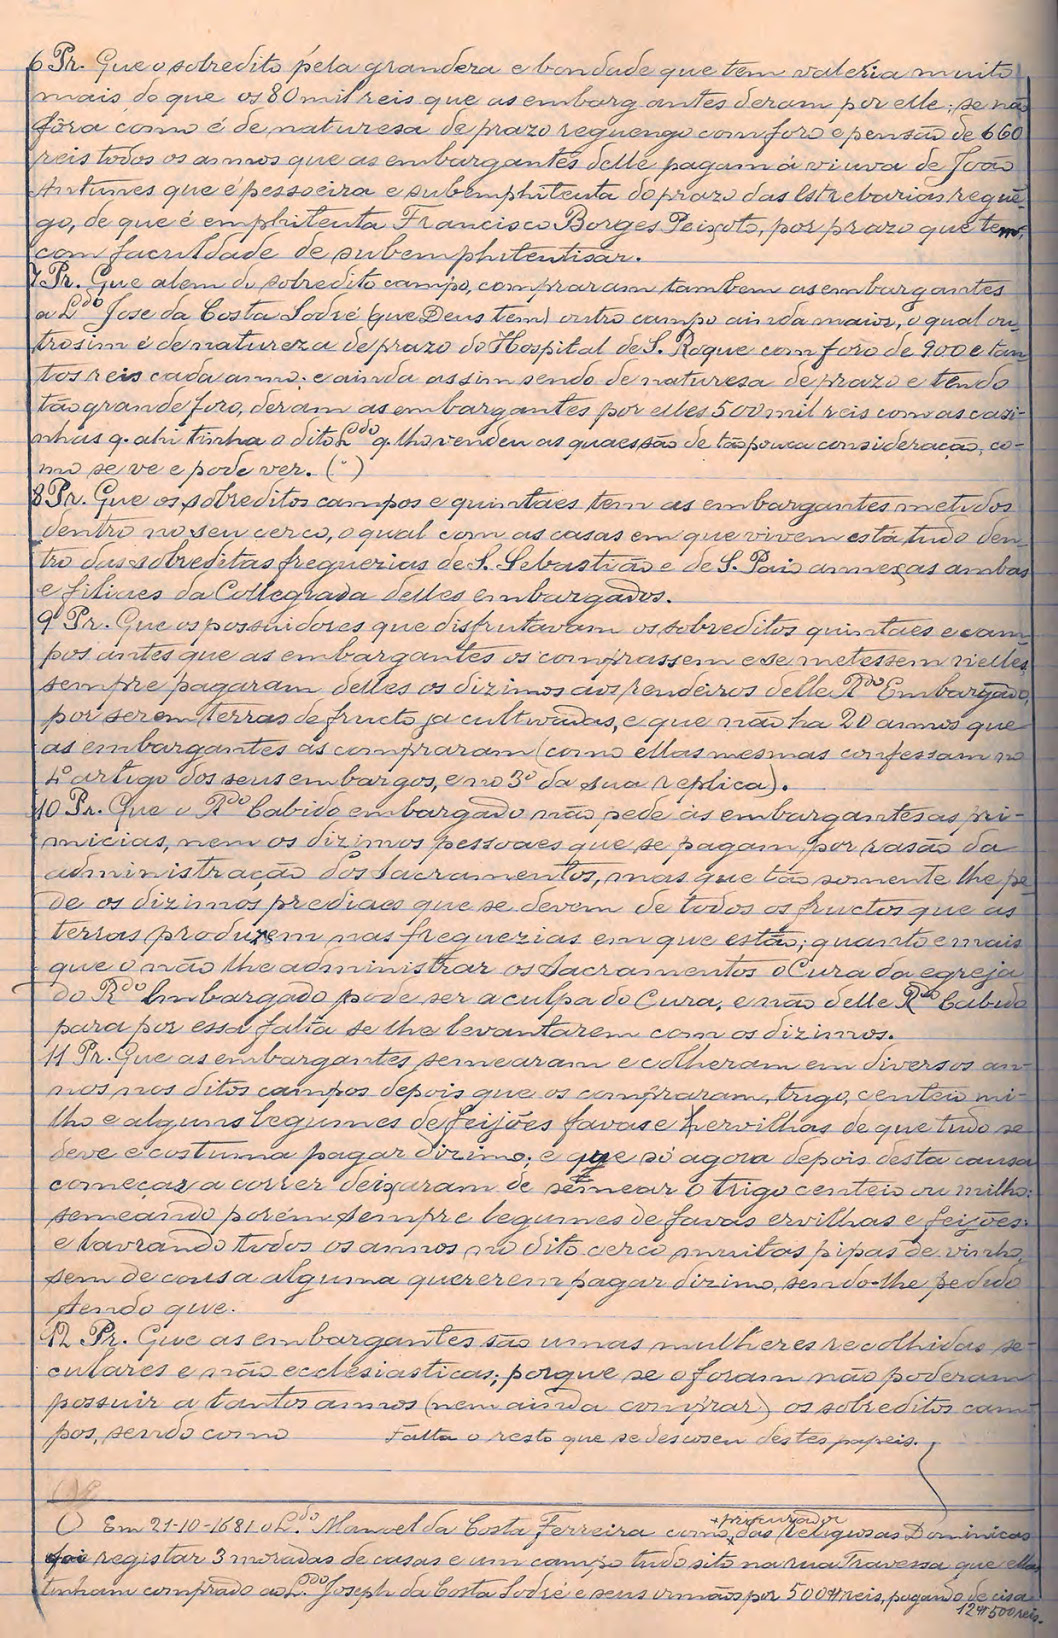 6 Pr. Que o sobredito pela grandeza e bondade que tem valeria muito
mais do que os 80 mil reis que as embargantes deram por elle; se não
fôra como é de naturesa de prazo reguengo com foro e pensão de 660
reis todos os annos que as embargantes delle pagam á viuva de João
Antunes que é pessoeira e subemphitenta do prazo das Estrebarias reguē-
go, de que é emphitenta Francisco Borges Peixoto, por prazo que tem,
com faculdade de subemphitentisar.
7 Pr. Que alem do sobredito campo, compraram tambem as embargantes
a L.do Jose da Costa Sodré (que Deus tem) outro campo ainda maior, o qual ou-
trosim é de natureza de prazo do Hospital de S. Roque com foro de 900 e tan-
tos reis cada anno; e ainda assim sendo de naturesa de prazo e tendo
tão grande foro, deram as embargantes por elles 500 mil reis com as casi-
nhas q. ahi tinha o dito L.do q. lho vendeu as quaes são de tão pouca consideração, co-
mo se ve e pode ver. (·)
8 Pr. Que os sobreditos campos e quintaes tem as embargantes metidos
dentro no seu cerco, o qual com as casas em que vivem está tudo den-
tro das sobreditas freguezias de S. Sebastião e de S. Paio annexas ambas
e filiaes da Collegiada delles embargados.
9 Pr. Que os possuidores que disfrutavam os sobreditos quintaes e cam-
pos antes que as embargantes os comprassem e se metessem nelles,
sempre pagaram delles os dizimos aos rendeiros delle R.do Embargado,
por serem terras de fructo ja cultivadas, e que não ha 20 annos que
as embargantes as compraram (como ellas mesmas confessam no
4º artigo dos seus embargos, e no 3º da sua replica).
10 Pr. Que o R.do Cabido embargado não pede ás embargantes as pri-
micias, nem os dizimos pessoaes que se pagam, por rasão da
administração dos Sacramentos, mas que tão somente lhe pe-
de os dizimos prediaes que se devem de todos os fructos que as
terras produzem nas freguezias em que estão; quanto e mais
que o não lhe administrar os Sacramentos o Cura da egreja
do R.do Embargado pode ser a culpa do Cura, e não delle R.do Cabido
para por essa falta se lhe levantarem com os dizimos.
11 Pr. Que as embargantes semearam e colheram em diversos an-
nos nos ditos campos depois que os compraram, trigo, centeio mi-
lho e alguns legumes de feijões favas e hervilhas de que tudo se
deve e costuma pagar dizimo; e que só agora depois desta causa
começar a correr deixaram de semear o trigo centeio ou milho:
semeando porém sempre legumes de favas ervilhas e feijões:
e lavrando todos os annos no dito cerco muitas pipas de vinho,
sem de cousa alguma quererem pagar dizimo, sendo-lhe pedido
sendo que.
12 Pr. Que as embargantes são umas mulheres recolhidas se-
culares e não ecclesiasticas; porque se o foram não poderam
possuir a tantos annos (nem ainda comprar) os sobreditos cam-
pos, sendo como Falta o resto que se descoseu destes papeis.
() Em 21-10-1681 o L.do Manoel da Costa Ferreira como procurador das religiosas Dominicas
foi registar 3 moradas de casas e um campo tudo sito na rua Travessa que ellas
tinham comprado ao L.do Joseph da Costa Sodré e seus irmãos por 500# reis, pagando de cisa
12#500 reis.